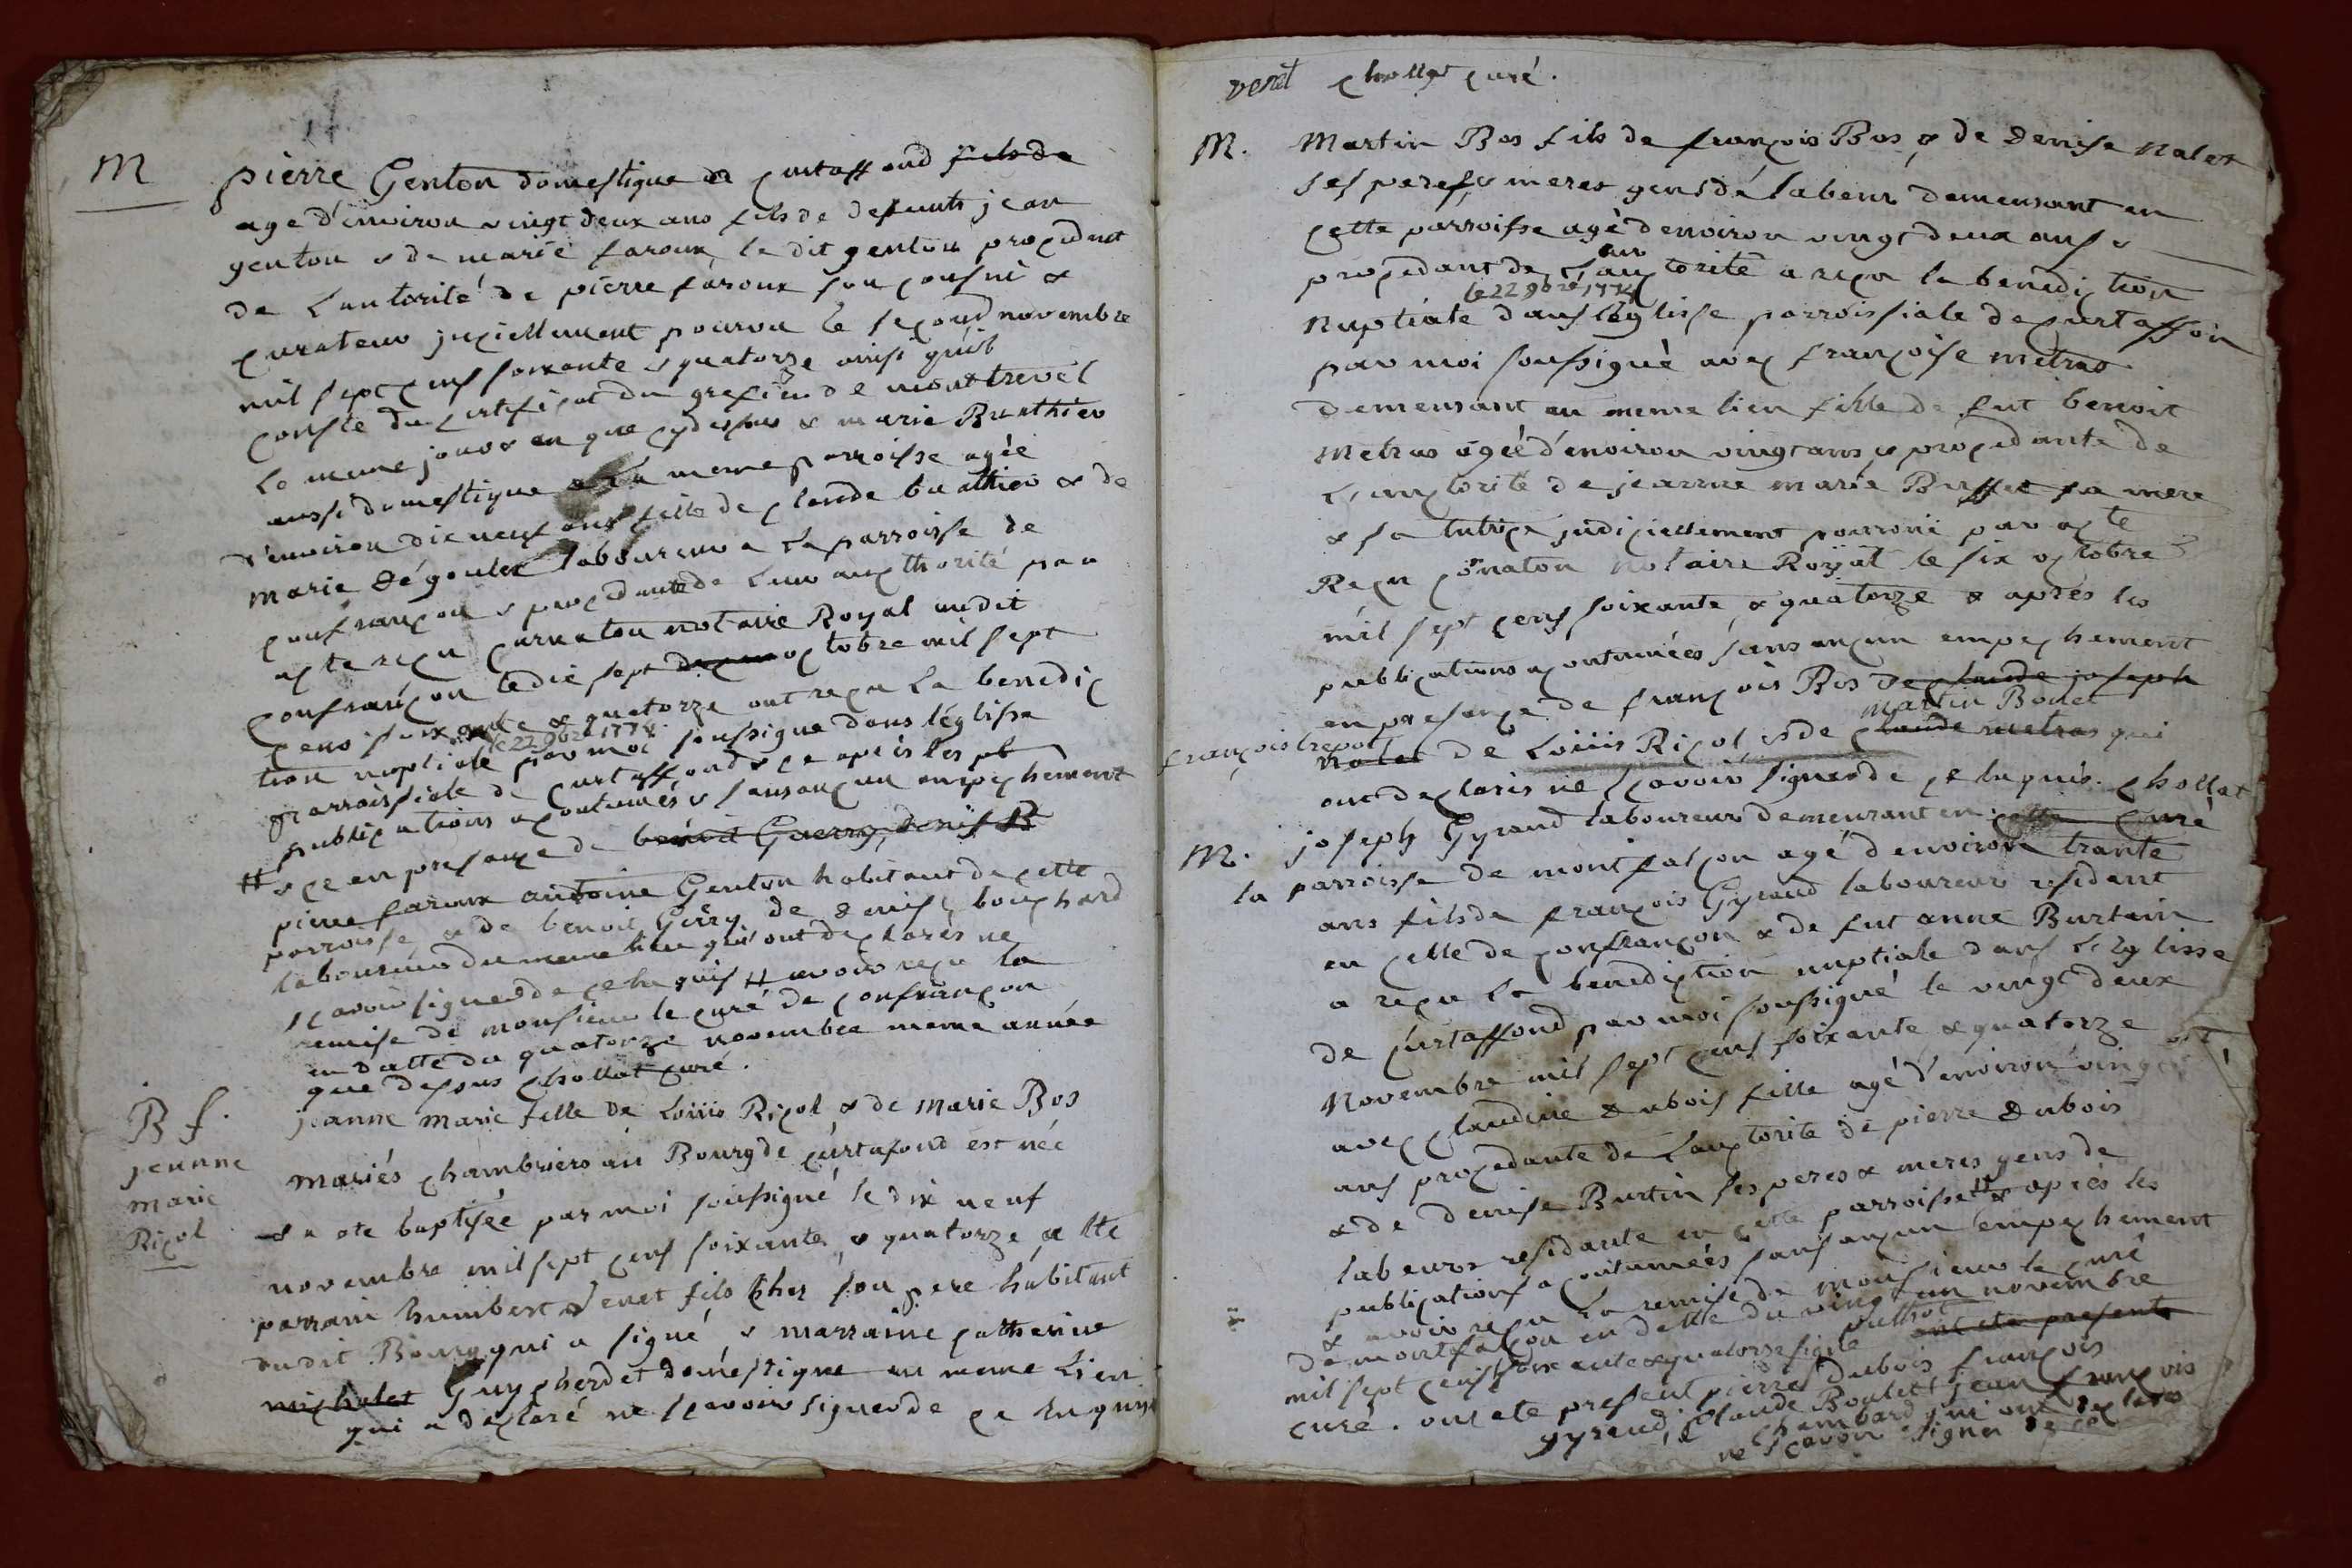 M
pierre Genton domestique de curtaffond fils de
age d'environ vingt deux ans fils de defunts jean
genton & de marie faroux le dit genton procedant
de l'autorité de pierre faroux son cousin &
curateur juciellement pourvu le second novembre
mil sept cens soixante & quatorze ainsi qu'il
conste du certificat du grefier de montrevel
le meme jour & an que cydessus & marie Buathier
aussi domestique en la meme parroisse agée
d'environ dix neuf ans fille de claude buathier & de
marie dégoulex laboureur a la parroisse de
confrançon & procedante de leur aucthorité par
acte reçu carnaton notaire Royal audit
confrançon le dix sept octobre mil sept
cens soixante & quatorze ont reçu la benedic
tion nuptiale le 22 9bre 1774 par moi soussigné dans l'églisse
parroissiale de curtaffond & ce après les pb
publications acoutumés & sans aucun empechement
# & ce en presence de benoit Guerry, denis B
pierre faroux antoine Genton habitant de cette
parroisse, & de benoit Gérry de denis bouchard
laboureurs du meme lieu qui ont declarés ne
scavoir signer de ce enquis # avoir reçu la
remise de monsieur le curé de confrançon
en datte du quatorze novembre meme année
que dessus chollat curé.
B f.
jeanne
marie
Riçol
jeanne marie fille de Loüis Riçol & de marie Bos
mariés chambriers au Bourg de curtafond est née
& a ete baptisée par moi soussigné le dix neuf
novembre mil sept cens soixante & quatorze, & été
parrain humbert venet fils chez son pere habitant
dudit Bourg qui a signé & marraine catherine
michalet Guycherdet domestique au meme lieu
qui a declaré ne scavoir signer de ce enquise
venet chollat curé.
M.
Martin Bos fils de françois Bos & de denise nalet
ses peres & meres gens de labeur demeurant en
cette parroisse agé d'environ vingt deux ans &
procedant de leur auctorité a reçu la benediction
le 22 9bre 1774
nuptiale dans l'églisse parroissiale de curtaffon
par moi soussigné avec françoise metras
demeurant au meme lieu fille de fut benoit
metras agée d'environ vingt ans & procedante de
l'auctorité de jeanne marie Buffet sa mere
& sa tutrice judiciellement pourvue par acte
Reçu conaton notaire Royal le six octobre
mil sept cens soixante & quatorze & après les
publications acoutumées sans aucun empechement
en presence de françois Bos de claude joseph
françois trepot nalet de Loüis Riçol & de martin Bonet claude metras qui
ont declarés ne scavoir signer de ce enquis. chollat
curé
M.
joseph Gyraud laboureur demeurant en cette
la parroisse de montfalcon agé d'environ trante
ans fils de françois Gyraud laboureur residant
en celle de confrançon & de fut anne Burtin
a reçu la benediction nuptiale dans l'Eglisse
de curtaffond par moi soussigné le vingt deux
novembre mil sept cens soixante & quatorze
avec claudine dubois fille agé d'environ vingt
ans procedante de l'auctorite de pierre dubois
& de denise Burtin ses peres & meres gens de
labeur residante en cette parroisse & après les
publications acoutumées sans aucun empechement
& avoir reçu la remise de monsieur le curé
de montfalcon en datte du vingt un novembre
mil sept cens soixante & quatorze signé pulliat ont ete presents
curé. ont ete present pierre dubois françois
gyraud, claude Boulett jean françois
chambard qui ont declaré
ne scavoir signer de ce